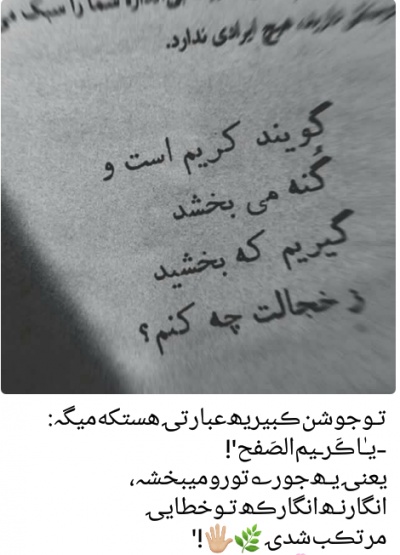 هیچ ایرادی ندارد.
گویند کریم است و
گُنه می بخشد
گیریم که بخشید
ز خجالت چه کنم؟
تو جوشن کبیر یھ عبارتی هستکه میگہ:
-یـٰا کَریم الصَفح'!
یعنی یـھ جورے تورو میبخشہ،
انگار نھ انگار کھ تو خطایی
مرتکب شدی🌿🖐🏼'!